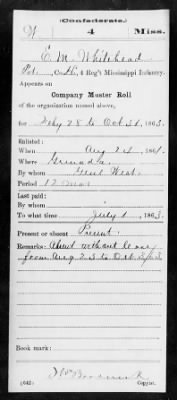 (Confederate.)
W 4 Miss.
E. M. Whitehead
Pvt., Co. H, 4 Reg't Mississippi Infantry.
Appears on
Company Muster Roll
of the organization named above,
for Feby 28 to Oct 31, 1863.
Enlisted:
When Aug 24, 1861.
Where Grenada
By whom Genl West
Period 12 mos
Last paid:
By whom
To what time July 1, 1863.
Present or absent Present.
Remarks: Absent without leave
from Aug. 23 to Oct. 3/63
Book mark:
(642) Copyist.